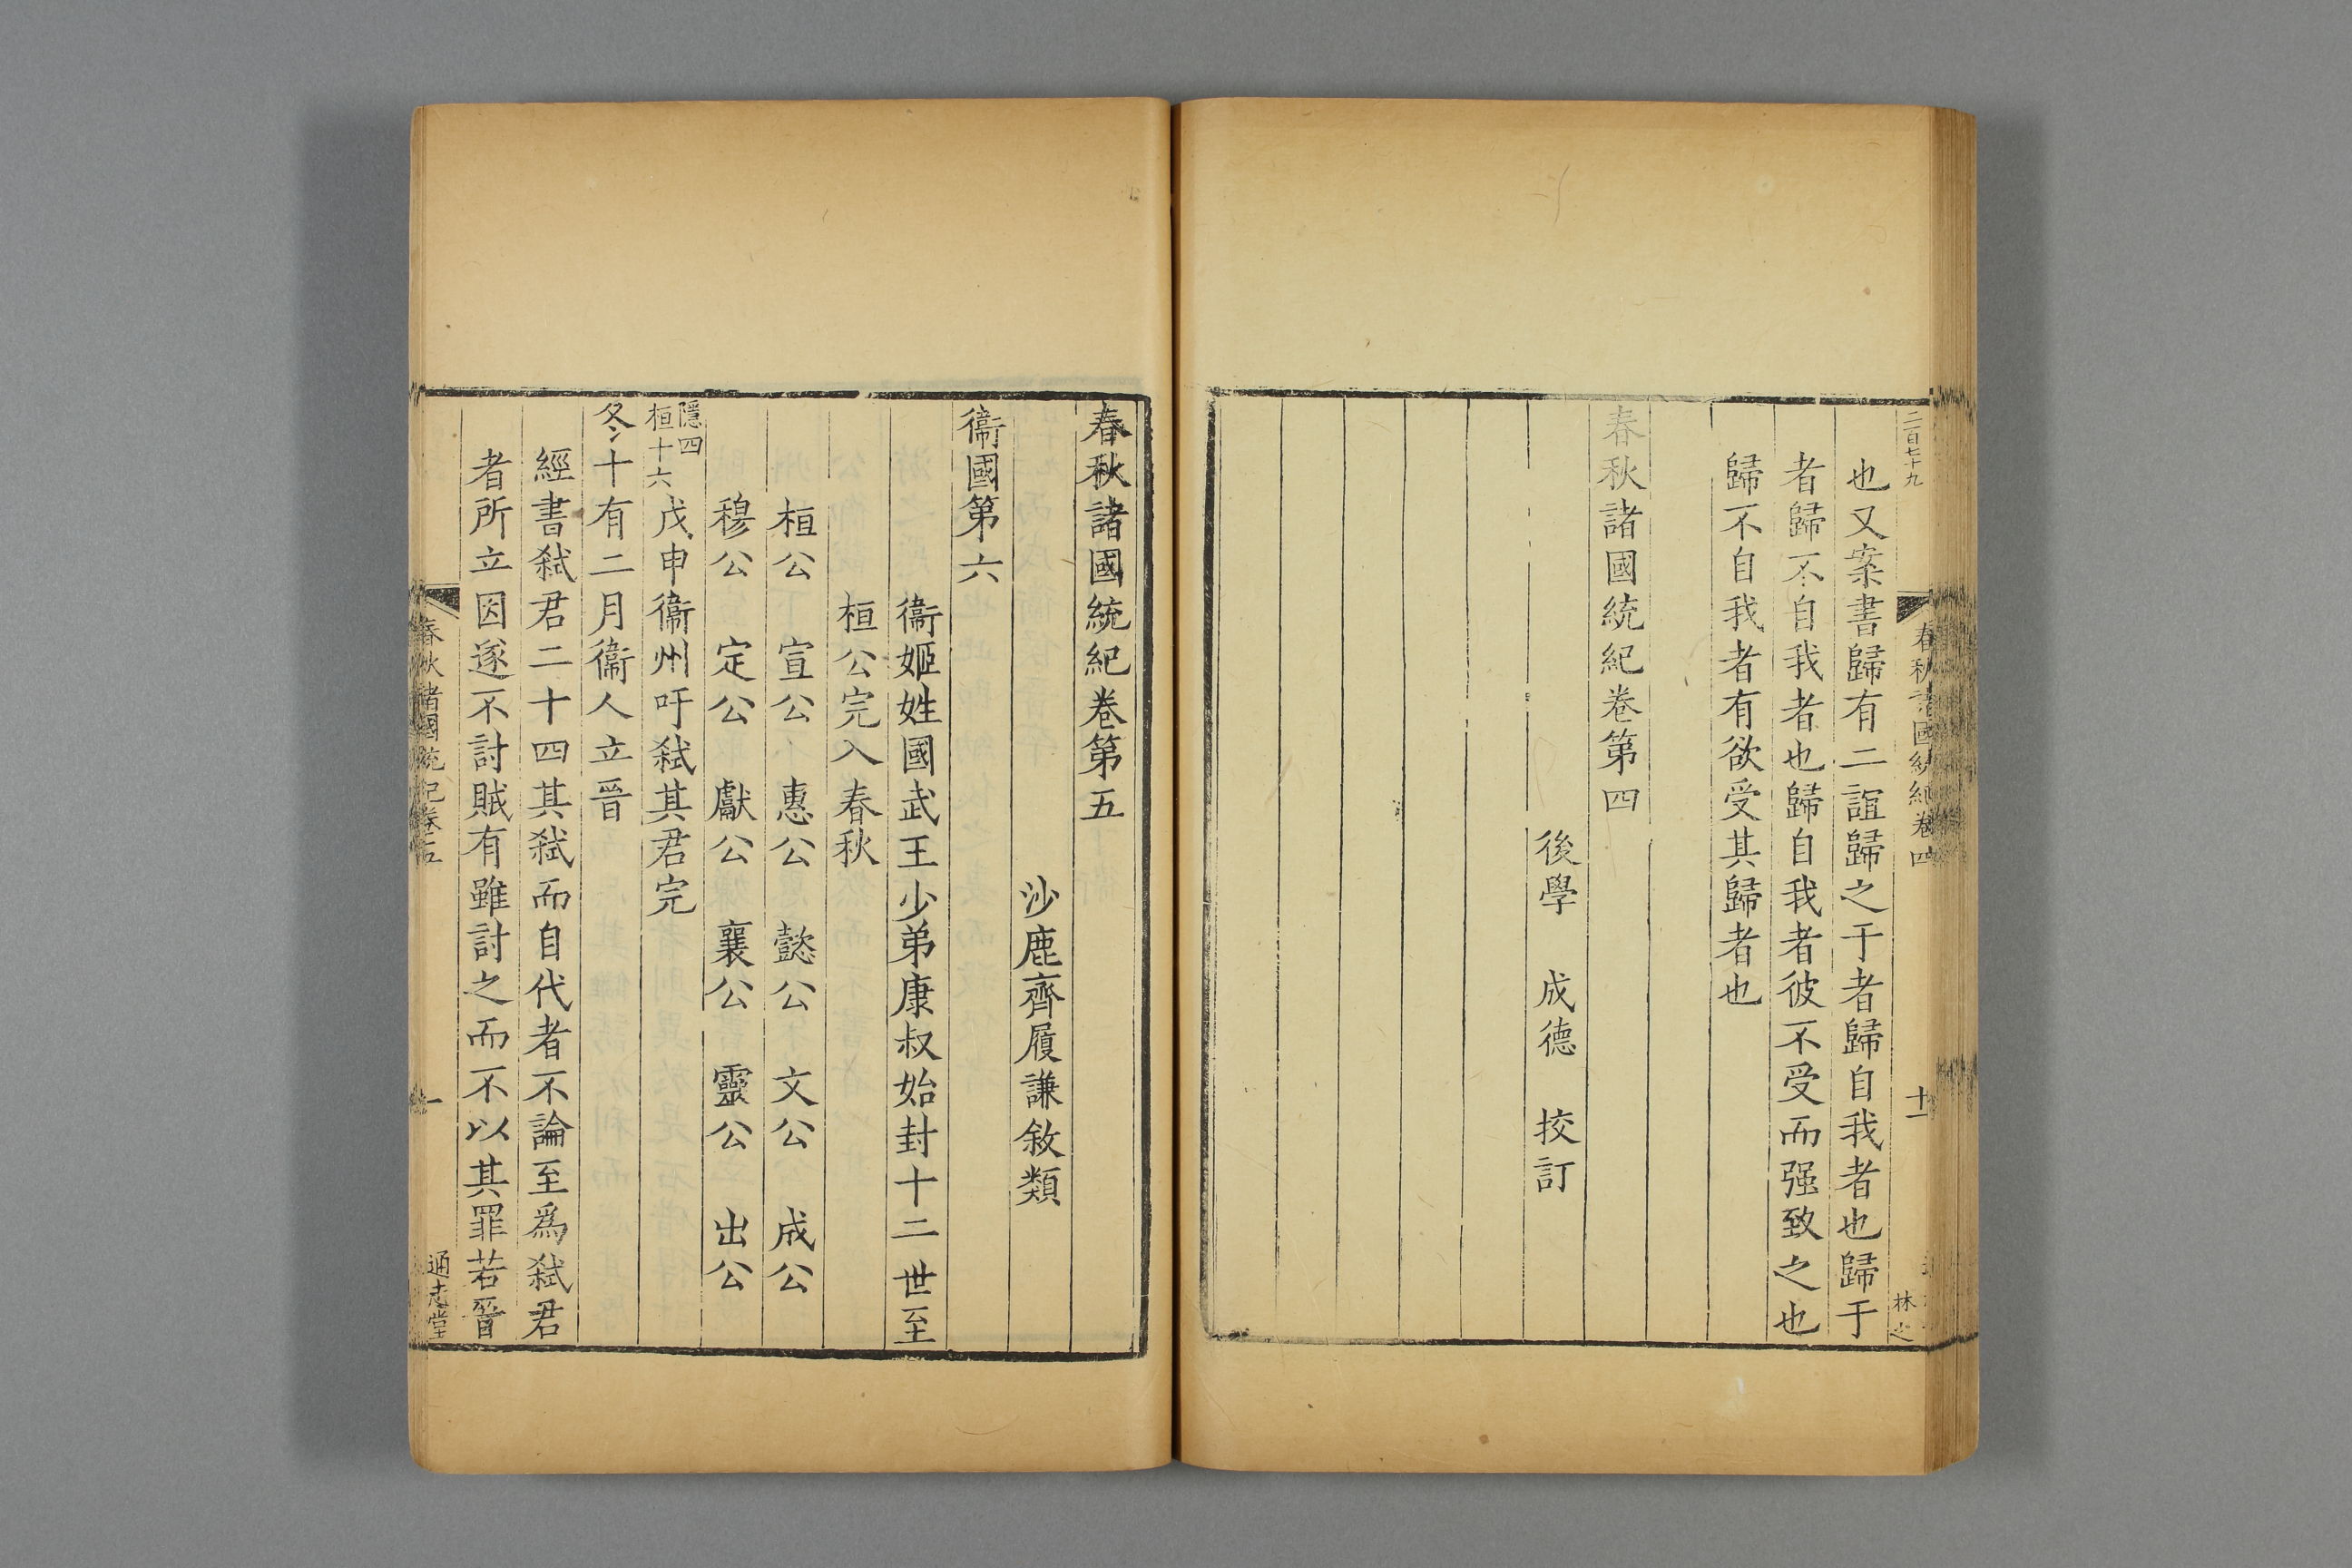 二百七十九
春秋諸國統紀卷四
十一
林之
也又案書歸有二誼歸之于者歸自我者也歸于
者歸不自我者也歸自我者彼不受而强致之也
歸不自我者有欲受其歸者也
春秋諸國統紀卷第四
後學 成德 挍訂
春秋諸國統紀卷第五
沙鹿齊履謙敘類
衞國第六
衞姬姓國武王少弟康叔始封十二世至
桓公完入春秋
桓公 宣公 惠公 懿公 文公 成公
穆公 定公 獻公 襄公 靈公 出公
隱四
桓十六
戊申衞州吁弑其君完
冬十有二月衞人立晉
經書弑君二十四其弑而自代者不論至爲弑君
者所立因遂不討賊有雖討之而不以其罪若晉
春秋諸國統紀卷五
一
通志堂